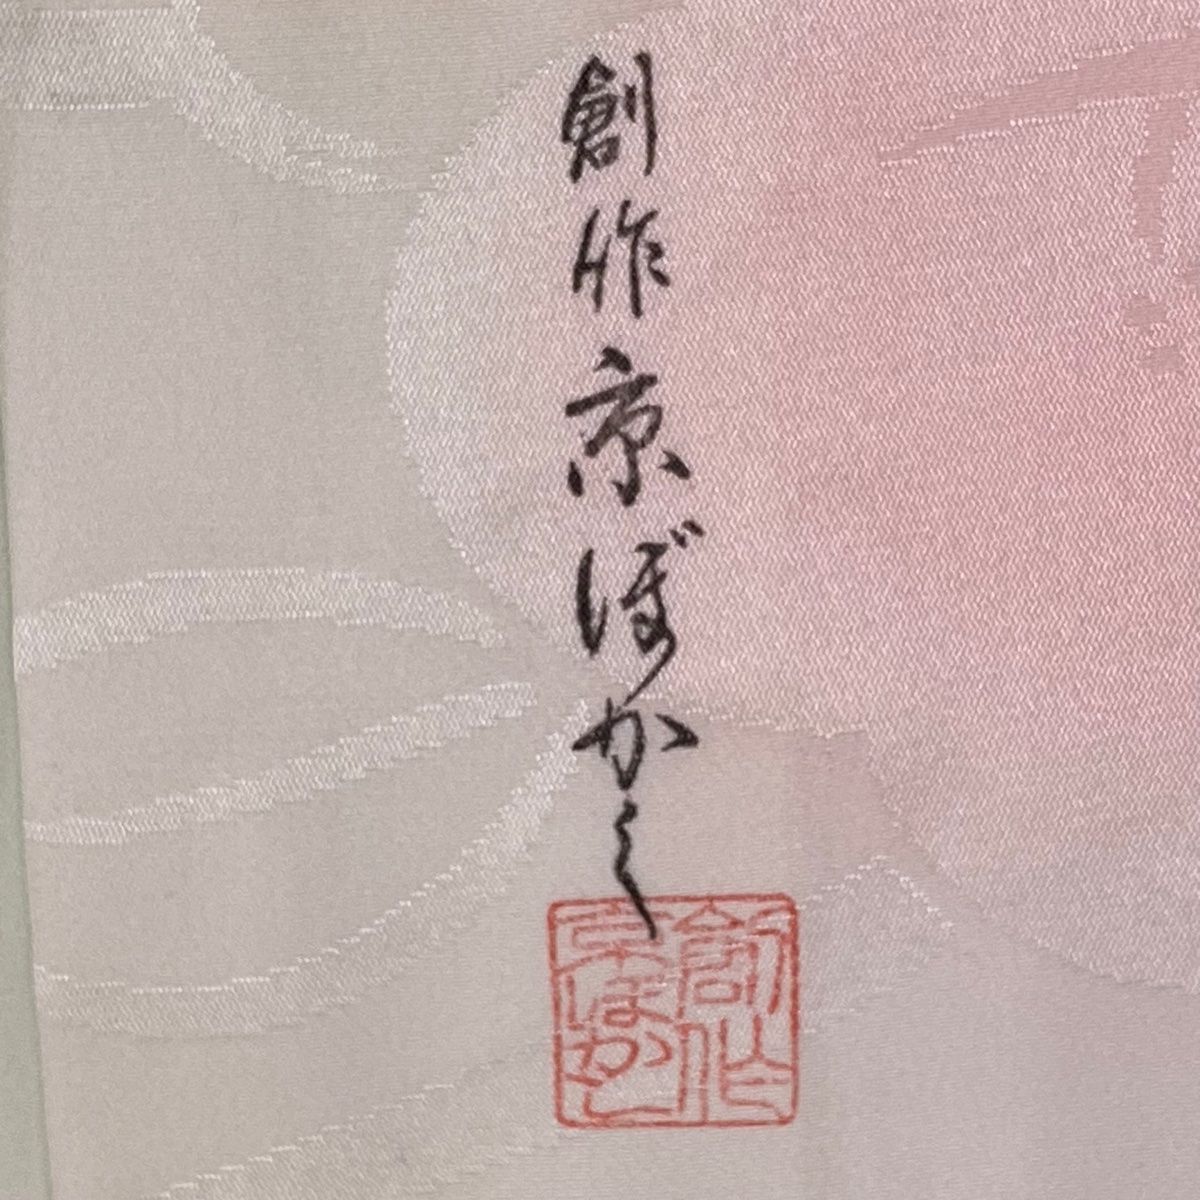 創作京ぼかし
創作
京ぼかし